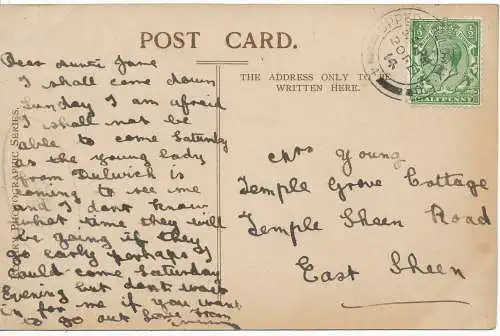 POST CARD.
THE ADDRESS ONLY TO BE
WRITTEN HERE.
HALFPENNY
PHOTOGRAPHIC SERIES.
Dear Auntie Jane
I shall come down
Sunday I am afraid
I shall not be
able to come Saturday
as the young lady
from Dulwich is
coming to see me
and I dont know
what time they will
be going if they
go early perhaps I
could come Saturday
Evening but dont wait
in for me if you want
to go out Love from
Mrs Young
Temple Grove Cottage
Temple Sheen Road
East Sheen